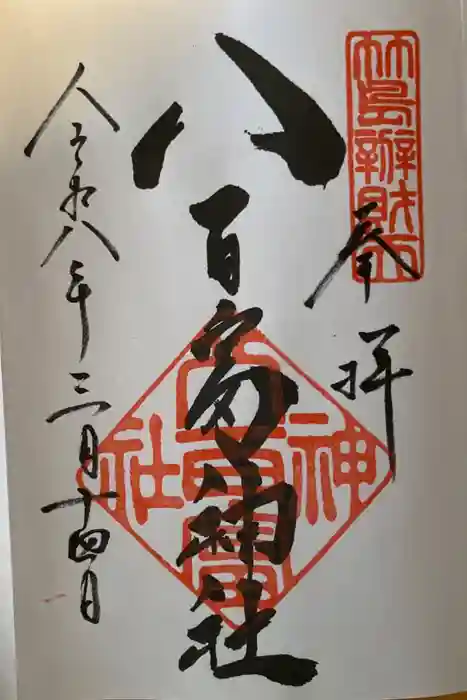 奉拝
竹島辦財天
八百富神社
八百富神社
令和八年三月十四日